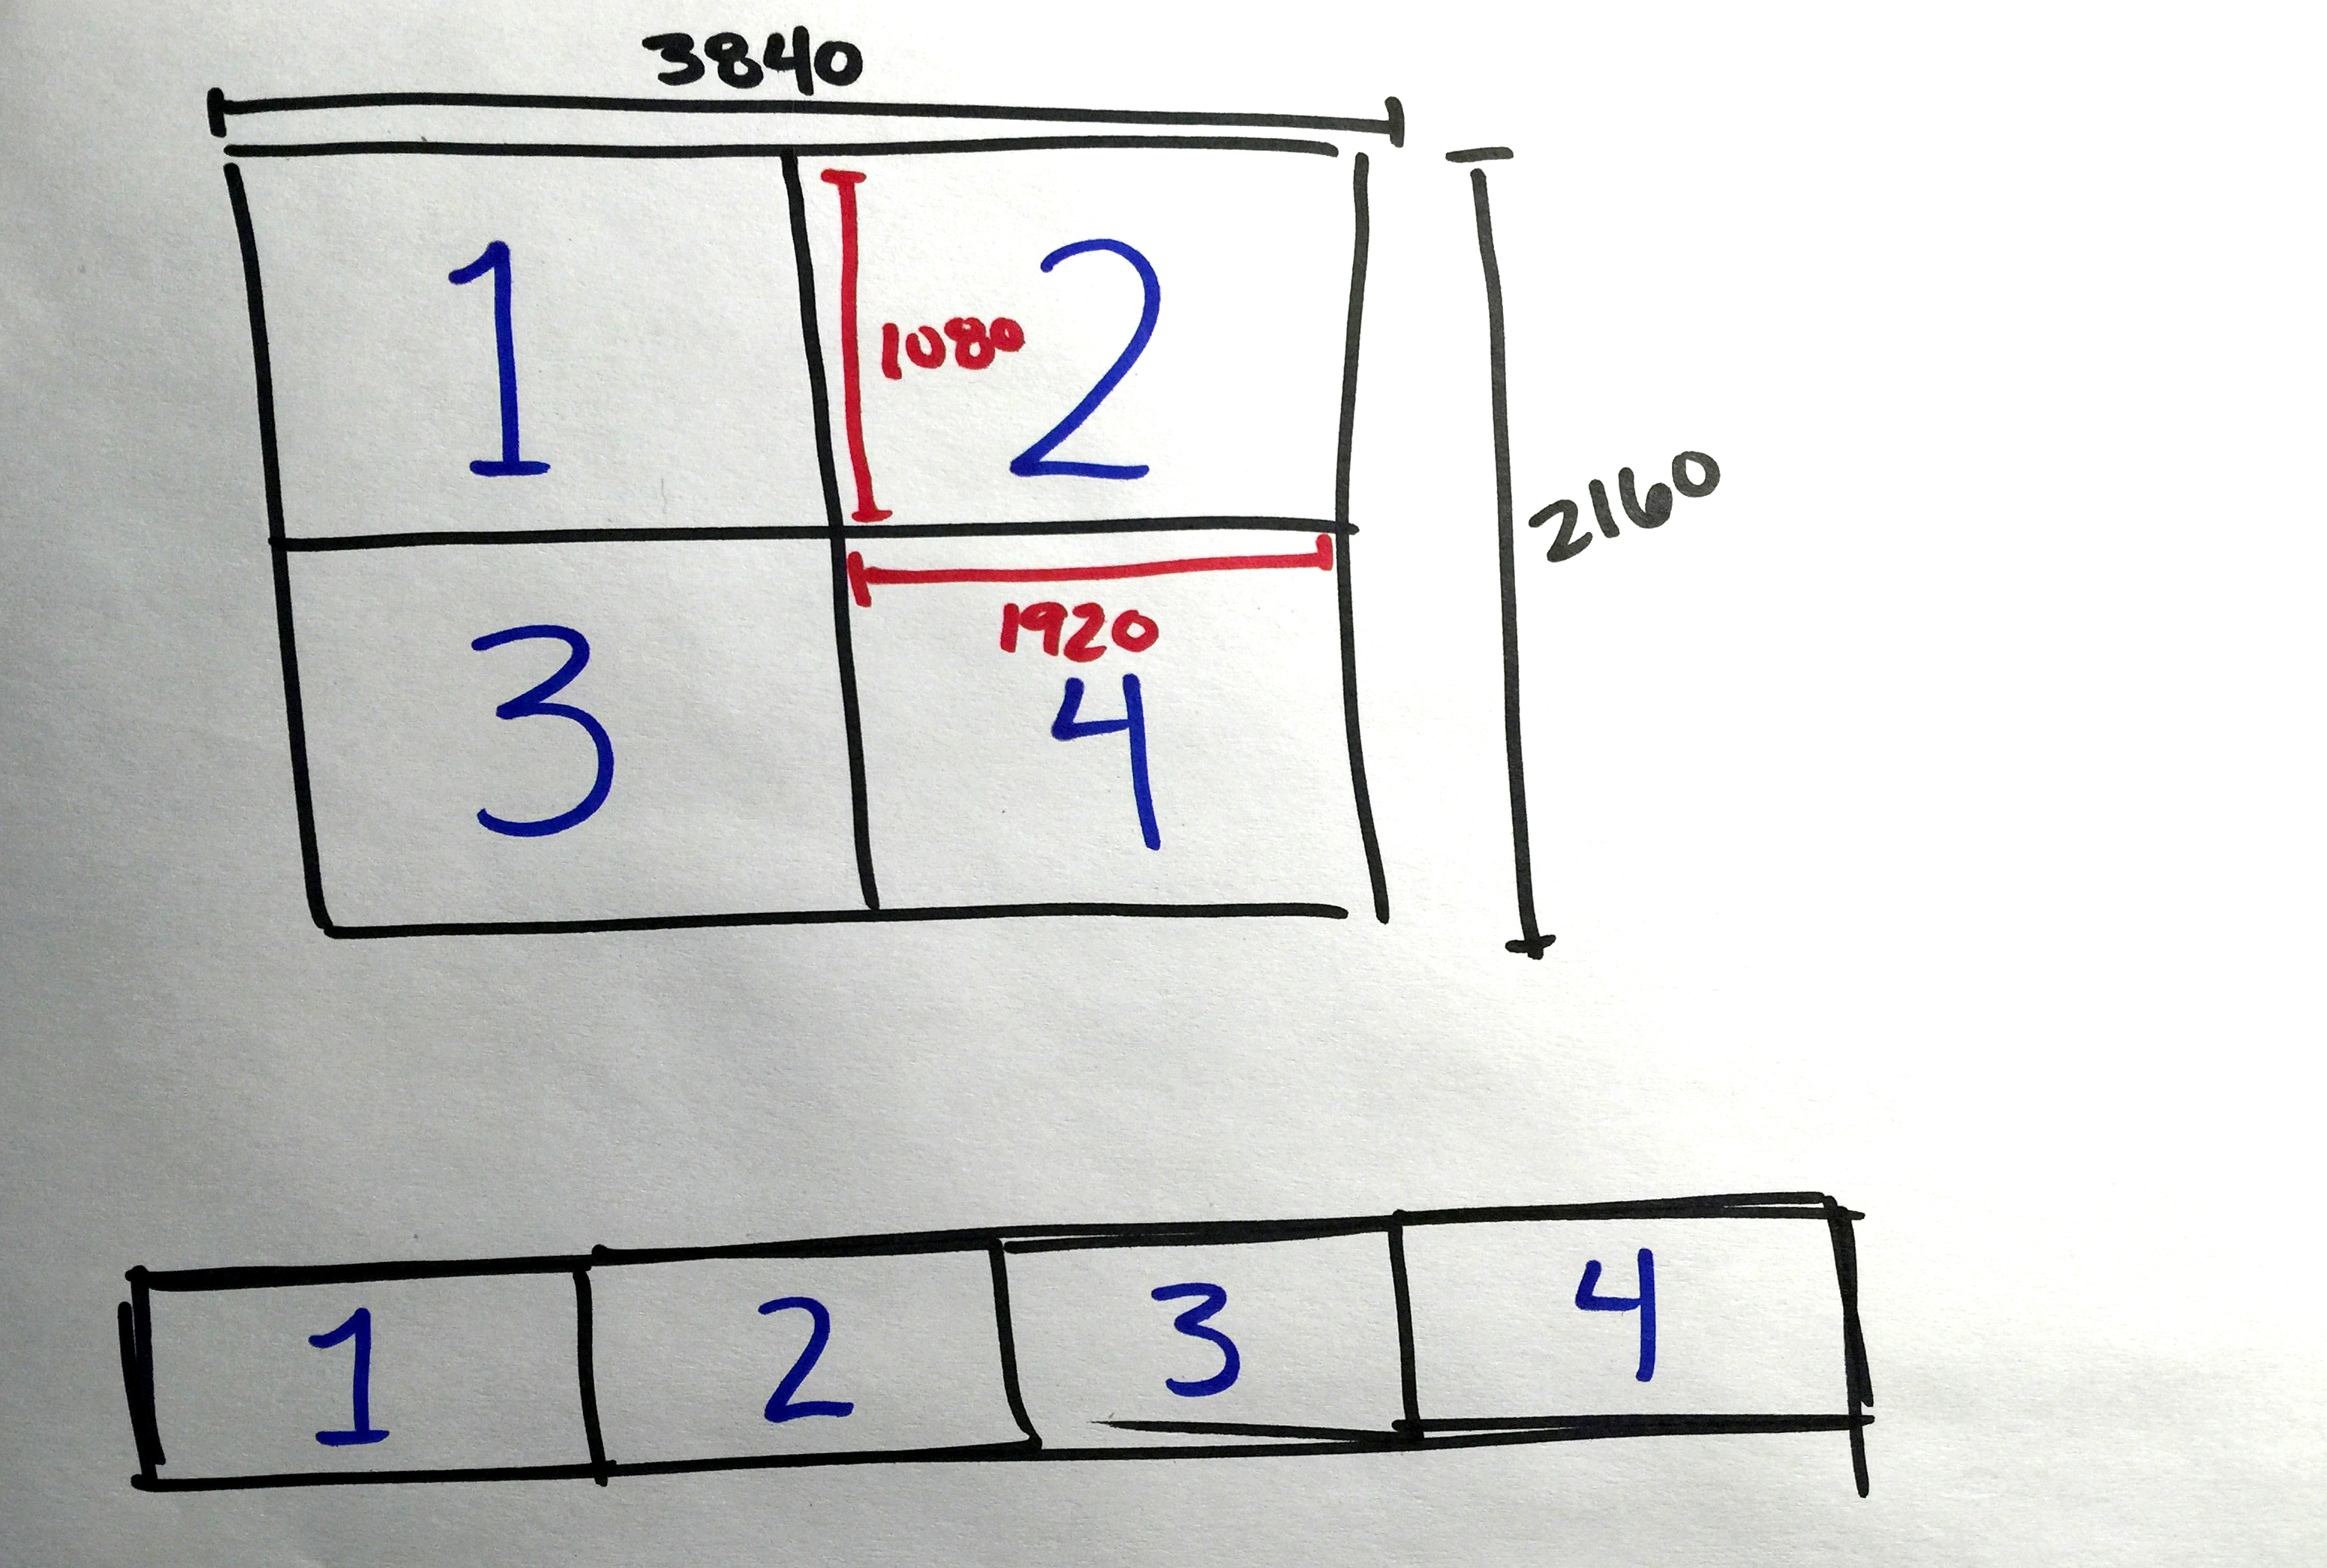 3840
1 1080 2
2160
1920
3 4
1 2 3 4